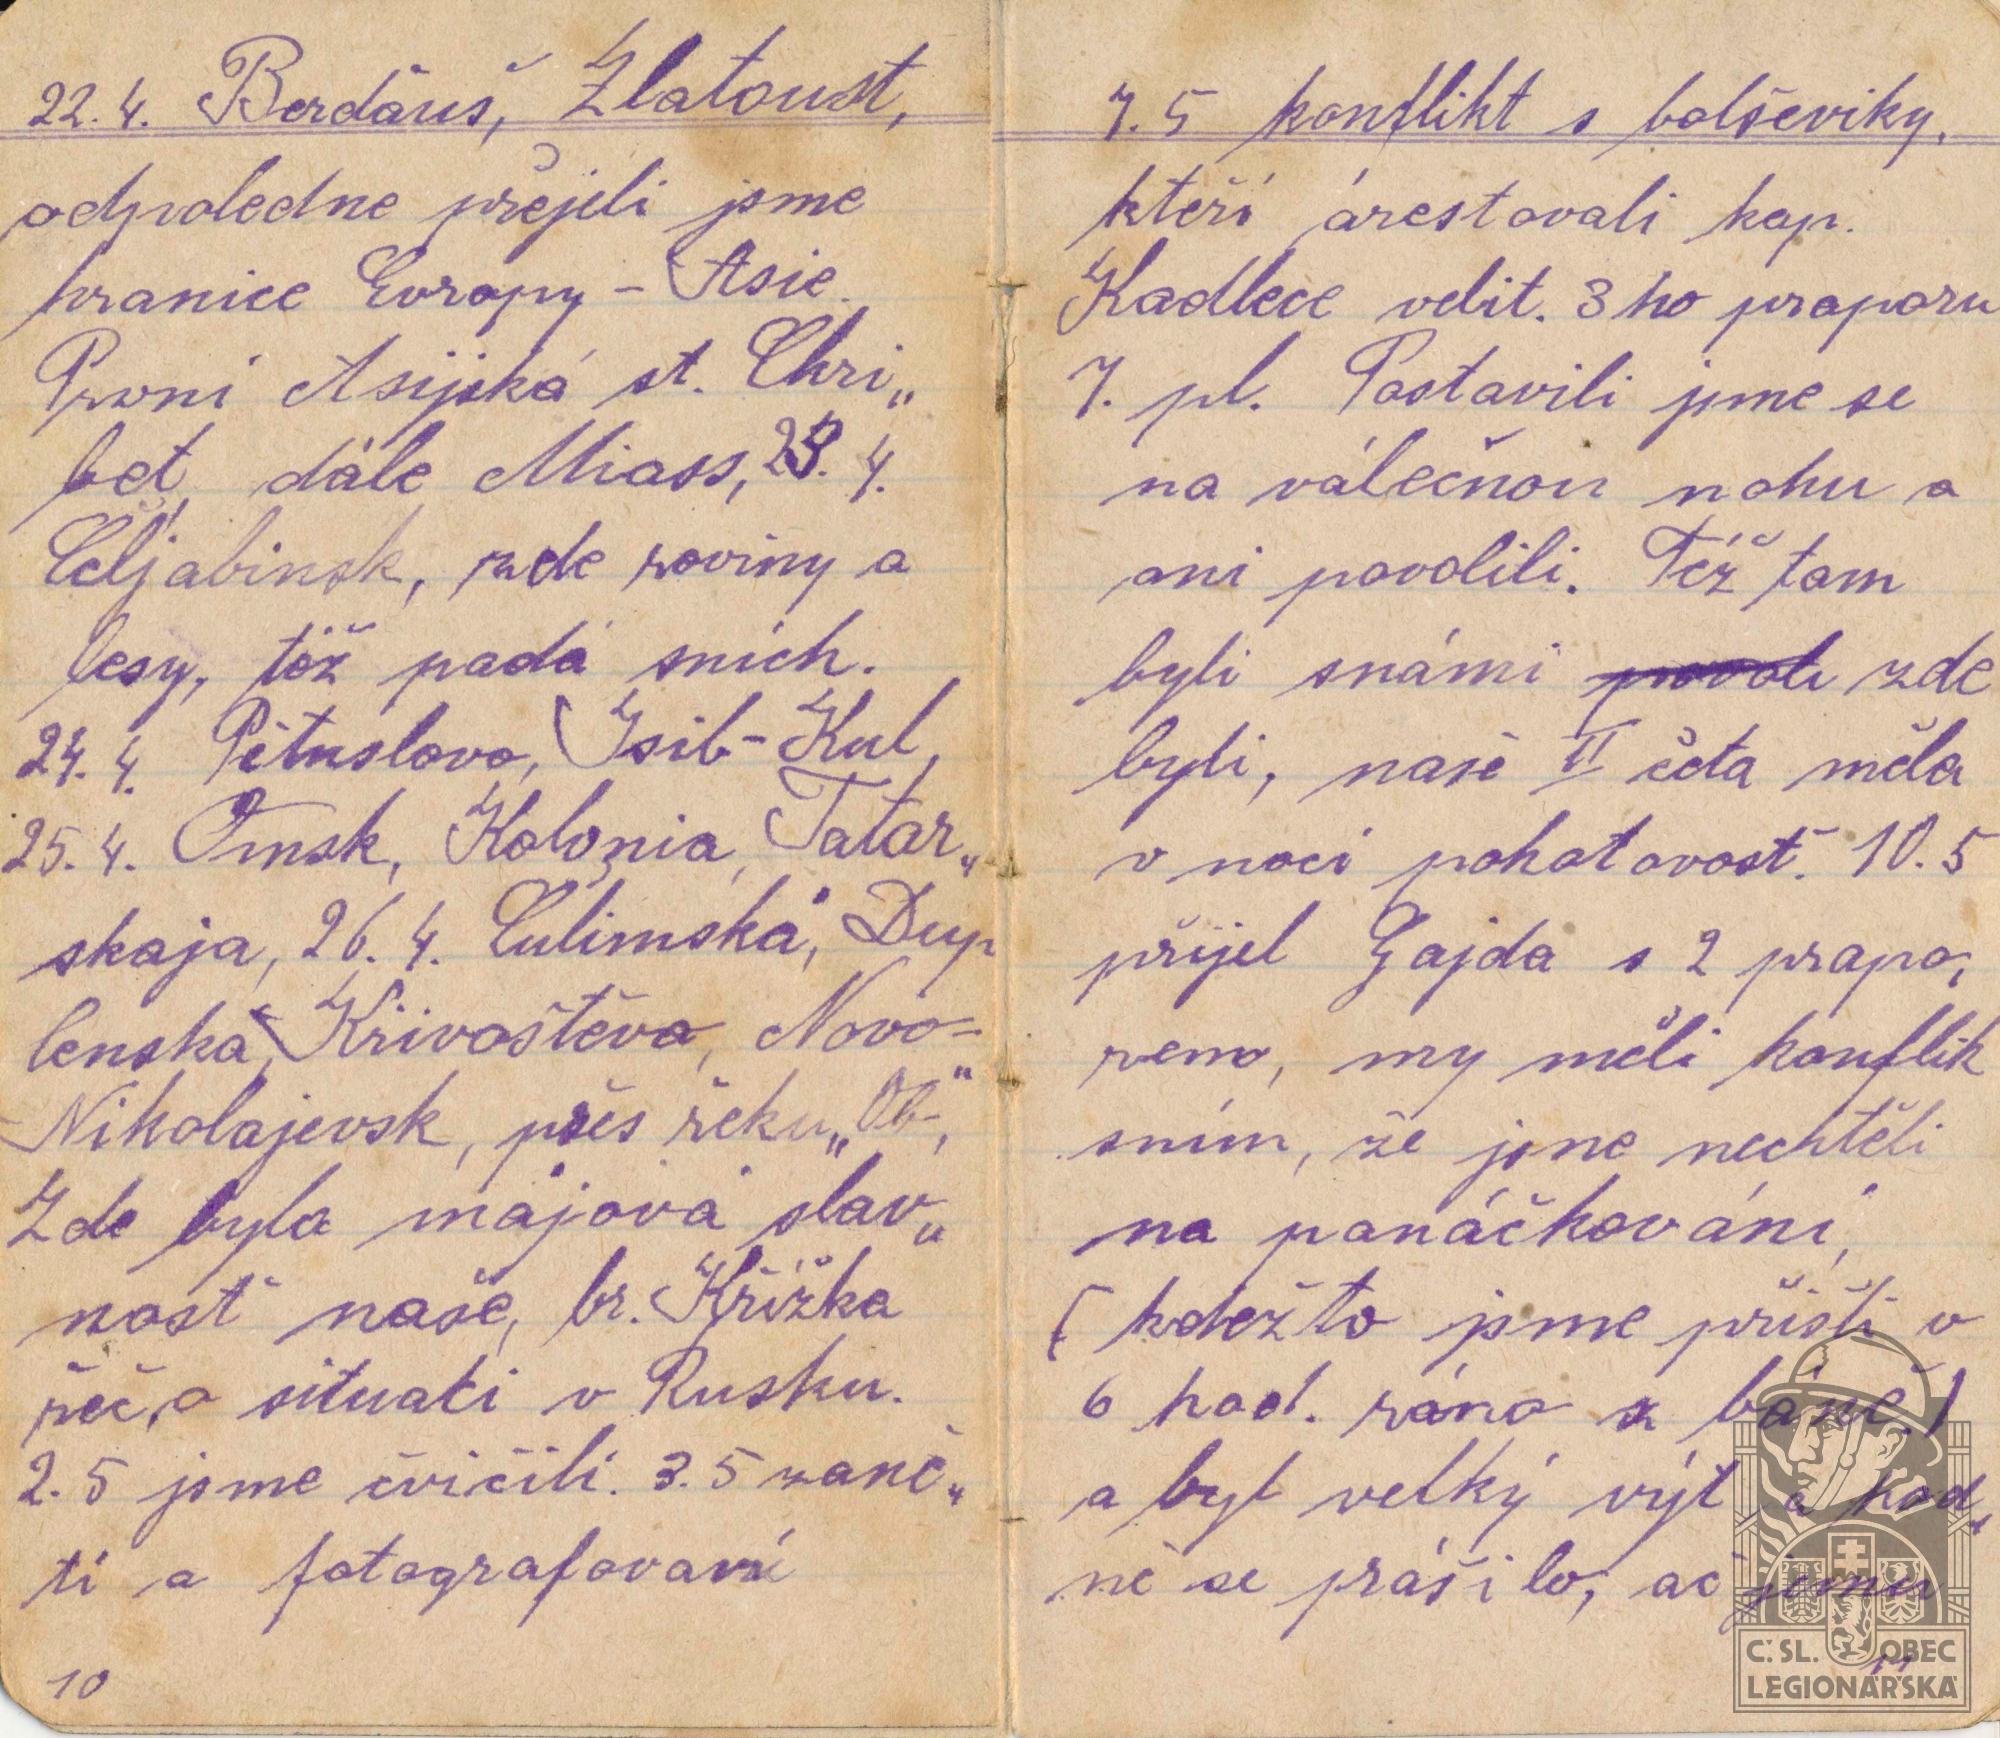 22.4. Berdäuš, Zlatoust,
odpoledne přejeli jsme
hranice Evropy - Asie.
Prvni Asijská st. Chri„
bet, dále Miass, 23. 4.
Čeljabinsk, zde roviny a
lesy, též padá snich.
24. 4. Pětuslovo, Isib-Kul,
25. 4. Omsk, Kolonia, Tatar„
skaja, 26. 4. Čulimská, Dup
lenská, Křivoštěvo, Novo-
Nikolajevsk, přes řeku „Ob“,
Zde byla májová slav„
nost naše, br. Křižka
řeč, o situaci v Rusku.
2. 5 jsme cvičili. 3. 5 zanč„
ti a fotografovaní
10
7. 5 konflikt s bolševiky,
kteří árestovali kap.
Kadlece velit. 3 ho praporu
7. pl. Postavili jsme se
na válečnou nohu a
oni povolili. Též tam
byli snámi povoli zde
byli, naše II četa měla
v noci pohotovost. 10. 5
přijel Gajda s 2 prapo,
rem, my měli konflik
sním, že jsme nechtěli
na panáčkováni,
( kdežto jsme přišli v
6 hod. ráno z báně )
a byl velký výt a hod„
ně se prášilo, ač jemu
11
Č. SL. OBEC
LEGIONÁŘSKÁ